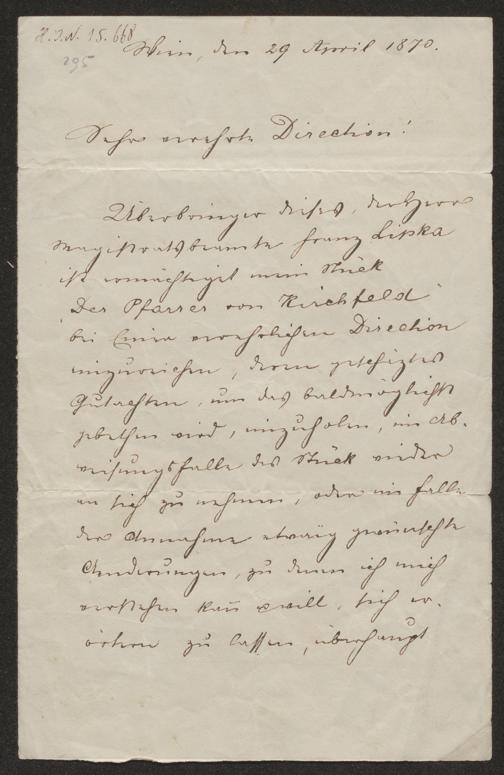 H.I.N. 15.668
295
Wien, den 29 April 1870.
Sehr verehrte Direction!
Überbringer dieses, der Herr
Magistratsbeamte Franz Lipka
ist ermächtiget mein Stück
"Der Pfarrer von Kirchfeld"
bei Einer verehrlichen Direction
einzureichen, deren geschätztes
Gutachten, um das baldmöglichst
gebethen wird, einzuholen, im Ab-
weisungsfalle das Stück wieder
an sich zu nehmen, oder im Falle
der Annahme etwaig gewünschte
Änderungen, zu denen ich mich
verstehen kann & will, sich er-
örtern zu lassen, überhaupt